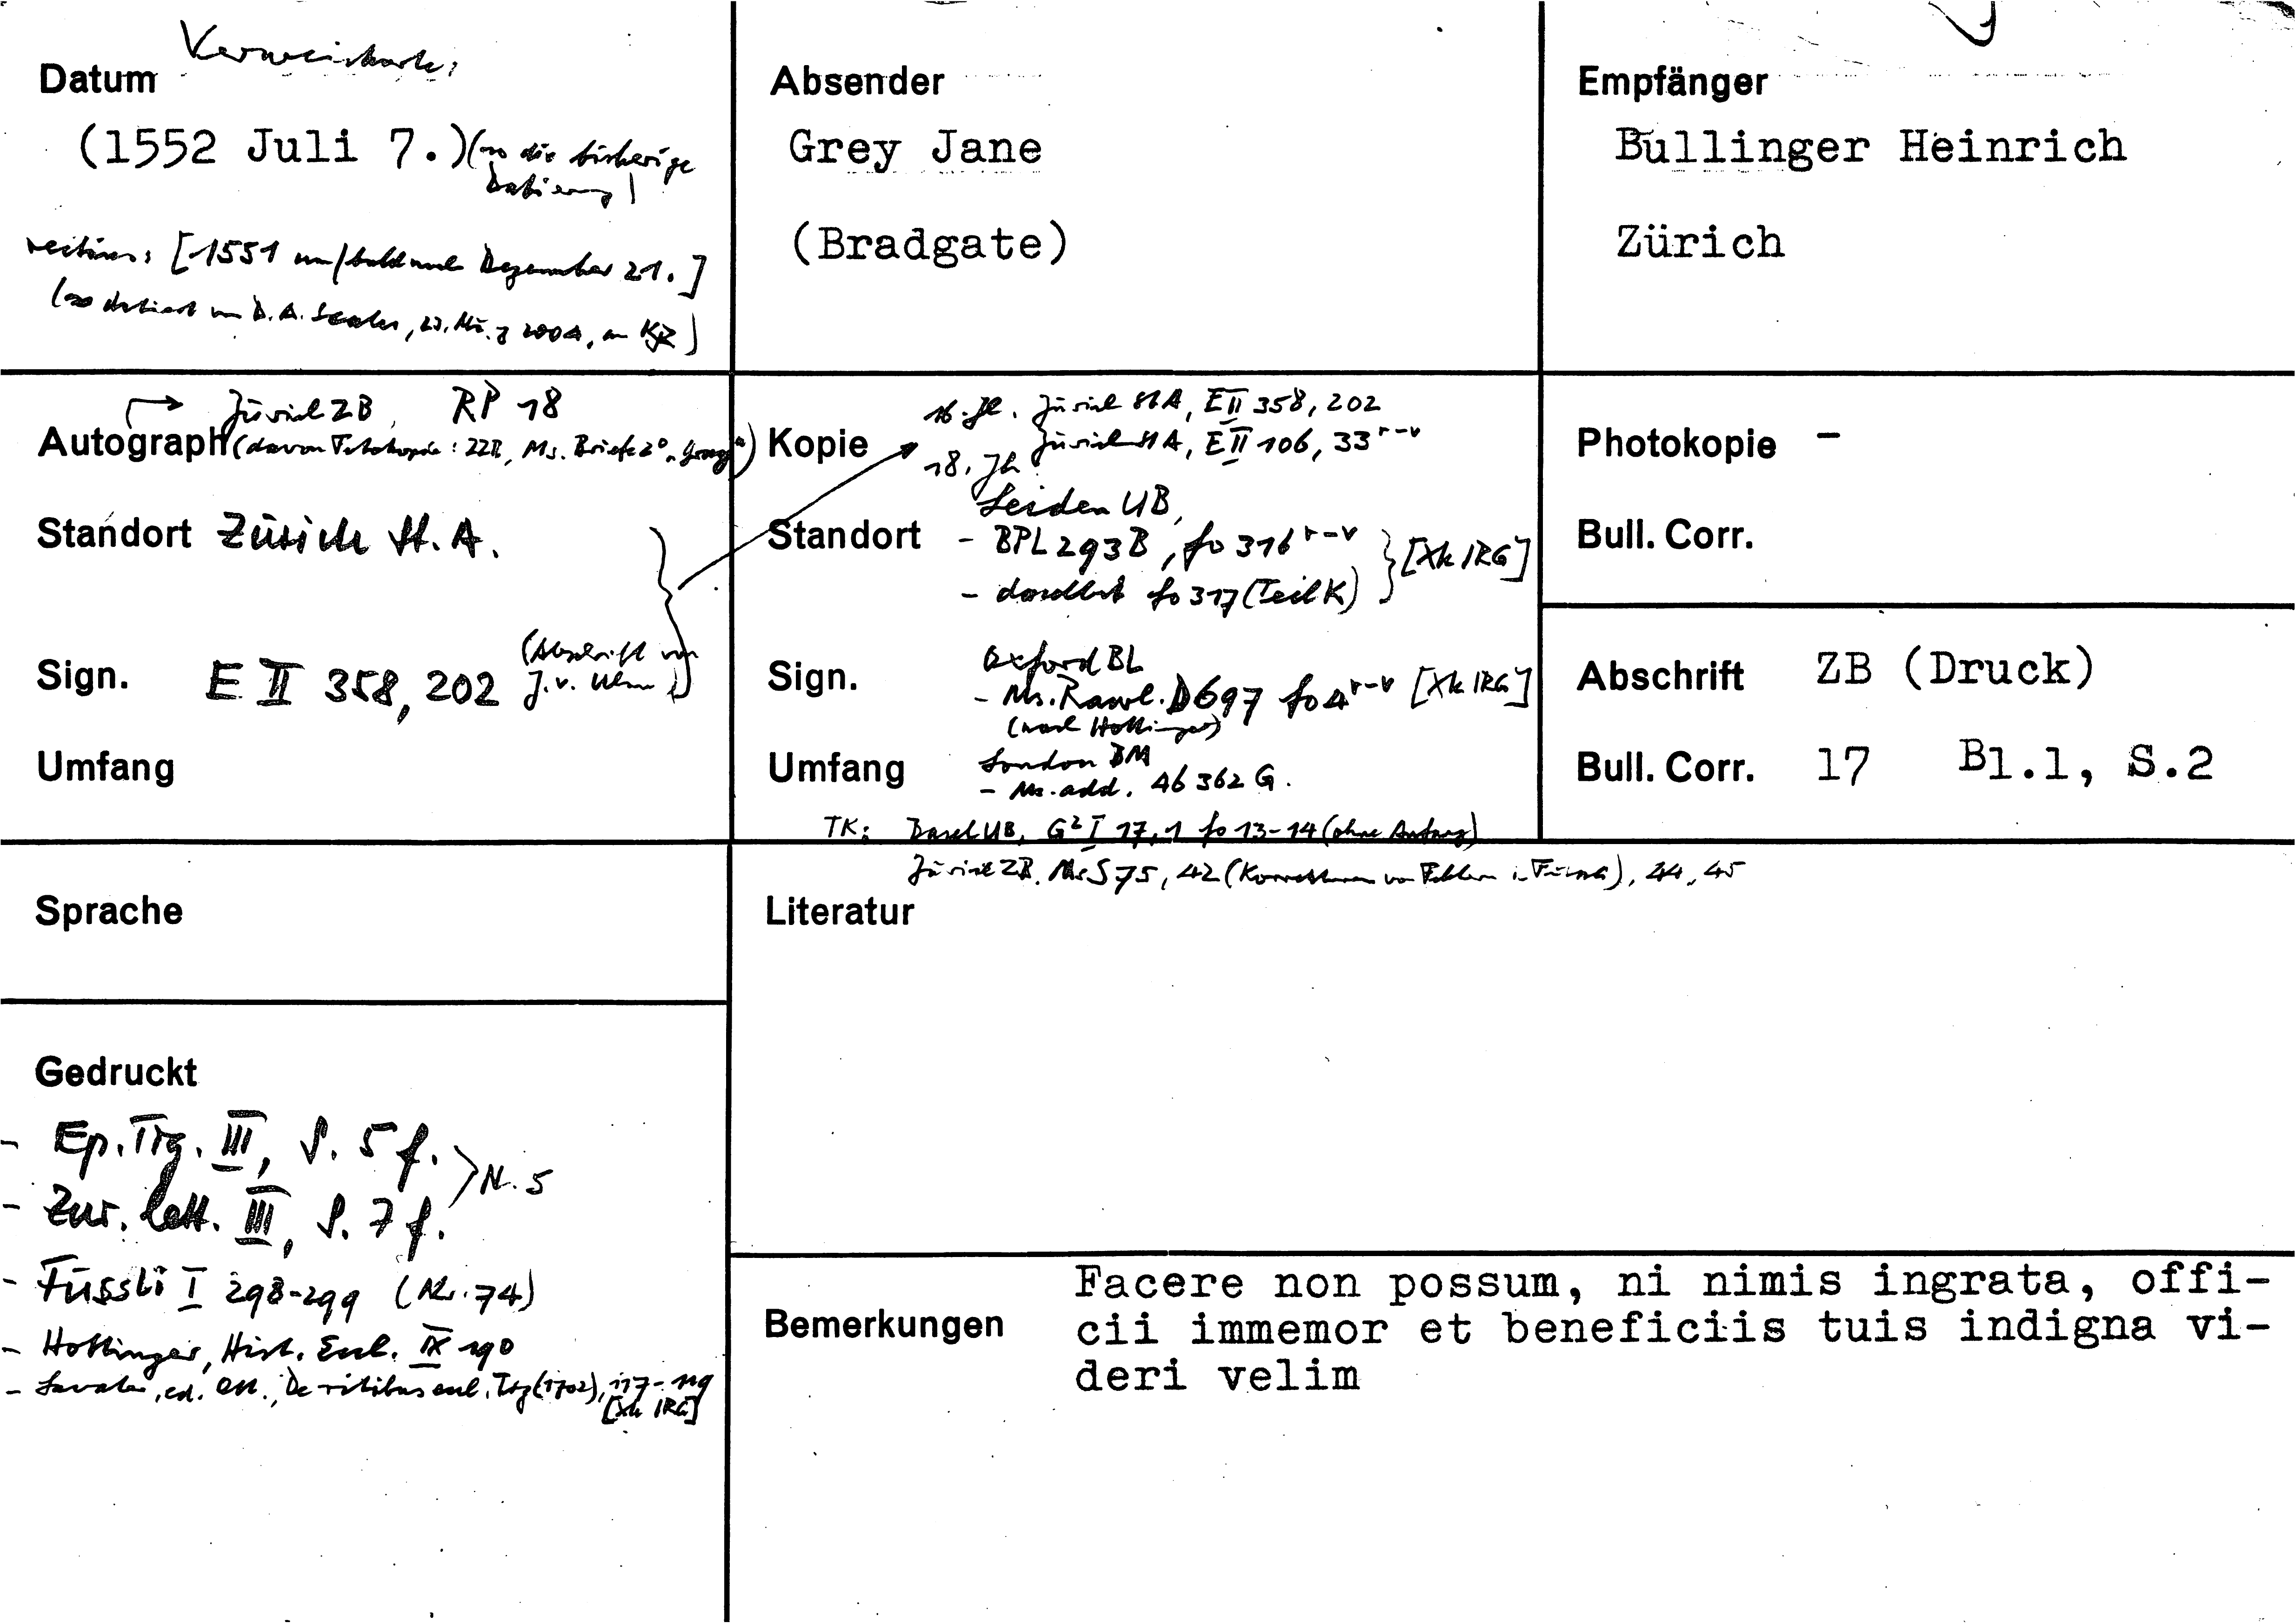 Verweiskarte:
Datum
(1552 Juli 7.) (so die bisherige
Datierung)
rectius: [1551 um/bald nach Dezember 21.]
(so datiert von D.A. 23. März 2004, an KJR)
Absender
Grey Jane
(Bradgate)
Empfänger
Bullinger Heinrich
Zürich
Zürich ZB, RP 18
Autograph (davon Fotokopie: ZZB, Ms. Briefe 2°
Standort Zürich St.A.
Sign. E II 358, 202 (Abschrift von
J.v. Ulm)
Umfang
16. Jh. Zürich StA, E II 358, 202
Kopie Zürich StA, E II 106, 33 r-v
18. Jh
Leiden UB,
Standort - BPL 293B, fo 316 r-v
- daselbst fo 317 (Teil K) [Xk IRG]
Oxford BL
Sign. - Ms. Rawl. D 697 fo 4 r-v [Xk IRG]
(nach Hottinger)
Umfang London BM
- Ms. add. 46 362 G.
TK: Basel UB, G² I 17,1 fo 13-14 (ohne Anfang)
Zürich ZB, Ms S 75, 42 (Korrekturen von Fehlern), 44, 45
Photokopie -
Bull. Corr.
Abschrift ZB (Druck)
Bull. Corr. 17 Bl.1, S.2
Sprache
Literatur
Gedruckt
- Ep. Tig. III, S. 5 f.
- Zur. lett. III, S. 7 f. > N. 5
- Füssli I 298-299 (Nr. 74)
- Hottinger, Hist. Eccl. IX 190
- Lavater, ed. Ott., De ritibus eccl. Tig (1702), 117-119
[Xk IRG]
Bemerkungen
Facere non possum, ni nimis ingrata, offi-
cii immemor et beneficiis tuis indigna vi-
deri velim